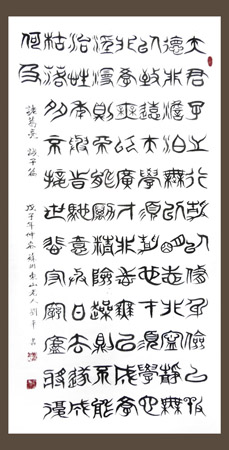 夫君子之行靜以修身儉以養
德非澹泊無以明志非寧靜無
以致遠夫學須靜也才須學也
非學無以廣才非志無以成學
淫慢則不能勵精險躁則不能
治性年與時馳意與日去遂成
枯落多不接世悲守窮廬將復
何及
諸葛亮 誡子篇 戊子年仲 東山老人